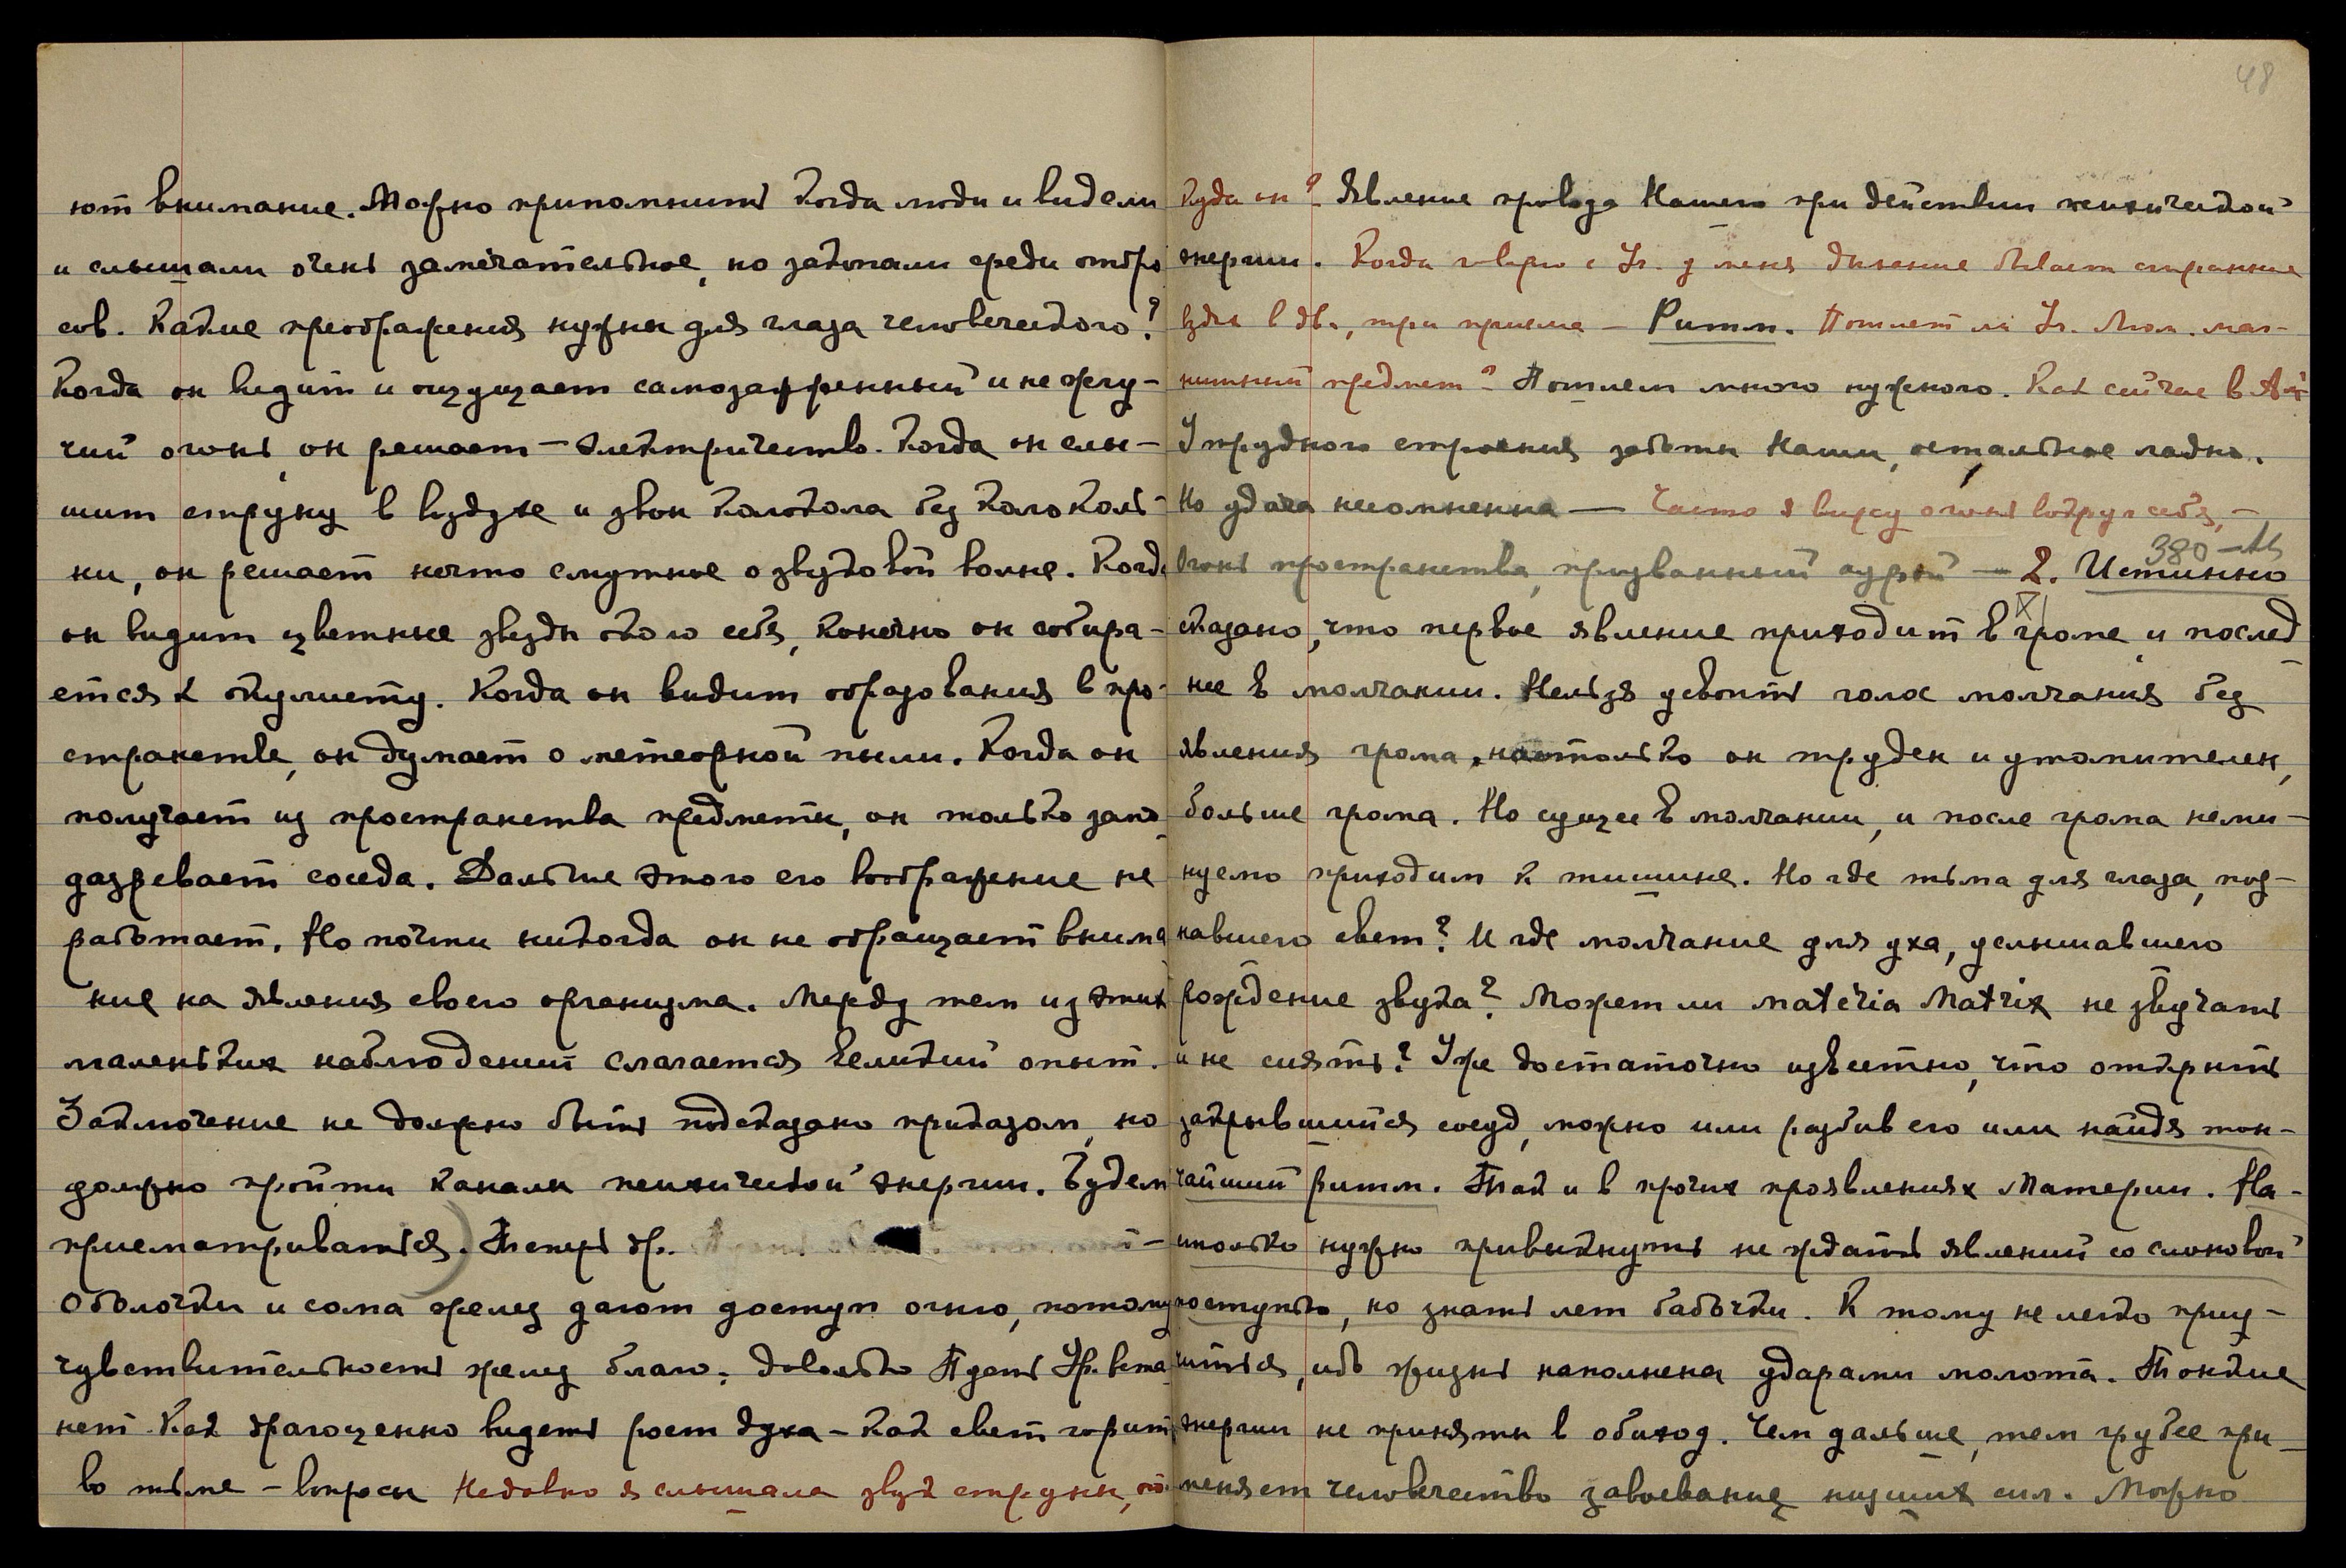 ют внимание. Можно припомнить когда люди и видели
и слышали очень замечательное, но заткали среди отбро
сов. Какие преображения нужны для глаза человеческого?
Когда он видит и ощущает самозажженный и не жгу-
чий огонь, он решает – электричество. Когда он слы-
шит струну в воздухе и звон колокола без колоколь-
ни, он решает нечто смутное о звуковой волне. Когда
он видит цветные звезды около себя, конечно он собира-
ется к окулисту. Когда он видит образования в про-
странстве, он думает о метеорной пыли. Когда он
получает из пространства предметы, он только запо
дазревает соседа. Дальше этого его воображение не
работает. Но почти никогда он не обращает внима
ние на явления своего организма. Между тем из этих
маленьких наблюдений слагается великий опыт.
Заключение не должно быть подсказано приказом, но
должно пройти каналы психической энергии. Будем
присматриваться. Теперь др.
Оболочки и сама желез дают доступ огню, потому
чувствительность желез благо. Довольно
нет. Как драгоценно видеть рост духа – как свет горит
во тьме – вопросы Недавно я слышала звук струны,
48
Куда он? Явление провода Нашего при действии психической
энергии. Когда говорю с Уч. у меня дыхание бывает странные
вздохи в два, три приема – Ритм. Пошлет ли Уч. Мол. маг-
нитный предмет? Пошлем много нужного. Как сейчас в
У трудного строения заботы Наши, остальное ладно.
Но удача несомненна — Часто я вижу огонь вокруг себя, –
Огонь пространства, призванный аурой — 2. Истинно
380 –
сказано, что первое явление приходит в громе, и послед
нее в молчании. Нельзя усвоить голос молчания без
явления грома, настолько он труден и утомителен,
больше грома. Но сущее в молчании, и после грома неми-
нуемо приходим к тишине. Но где тьма для глаза, поз-
навшего свет? И где молчание для уха, услышавшего
рождение звука? Может ли materia Matrix не звучать
и не сиять? Уже достаточно известно, что открыть
закрывшийся сосуд, можно или разбив его или найдя тон-
чайший ритм. Так и в прочих проявлениях Материи. На-
сколько нужно привыкнуть не ждать явлений со слоновой
поступью, но знать лет бабочки. К тому не легко приу-
читься, ибо жизнь наполнена ударами молота. Тонкие
энергии не приняты в обиход. Чем дальше, тем грубее при-
меняет человечество завоевание низших сил. Можно